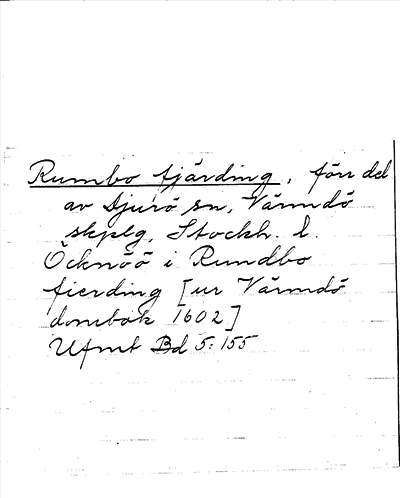 Rumbo fjärding, förr del
av Djurö sn, Värmdö
skplg, Stockh. l.
Öcknöö i Rundbo
fierding [ur Värmdö
dombok 1602]
Ufmt Bd 5:155